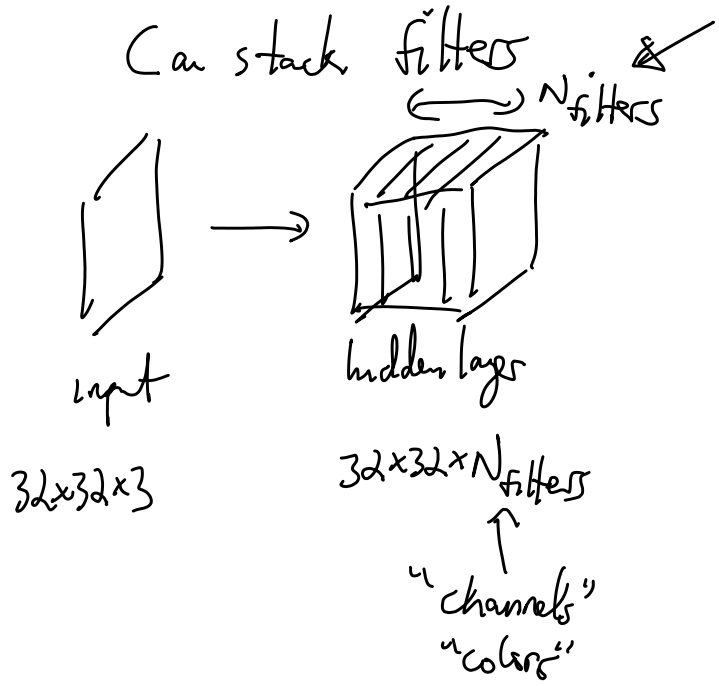 Can stack filters
N filters
input
hidden layer
32×32×3
32×32×N filters
"channels"
"colors"